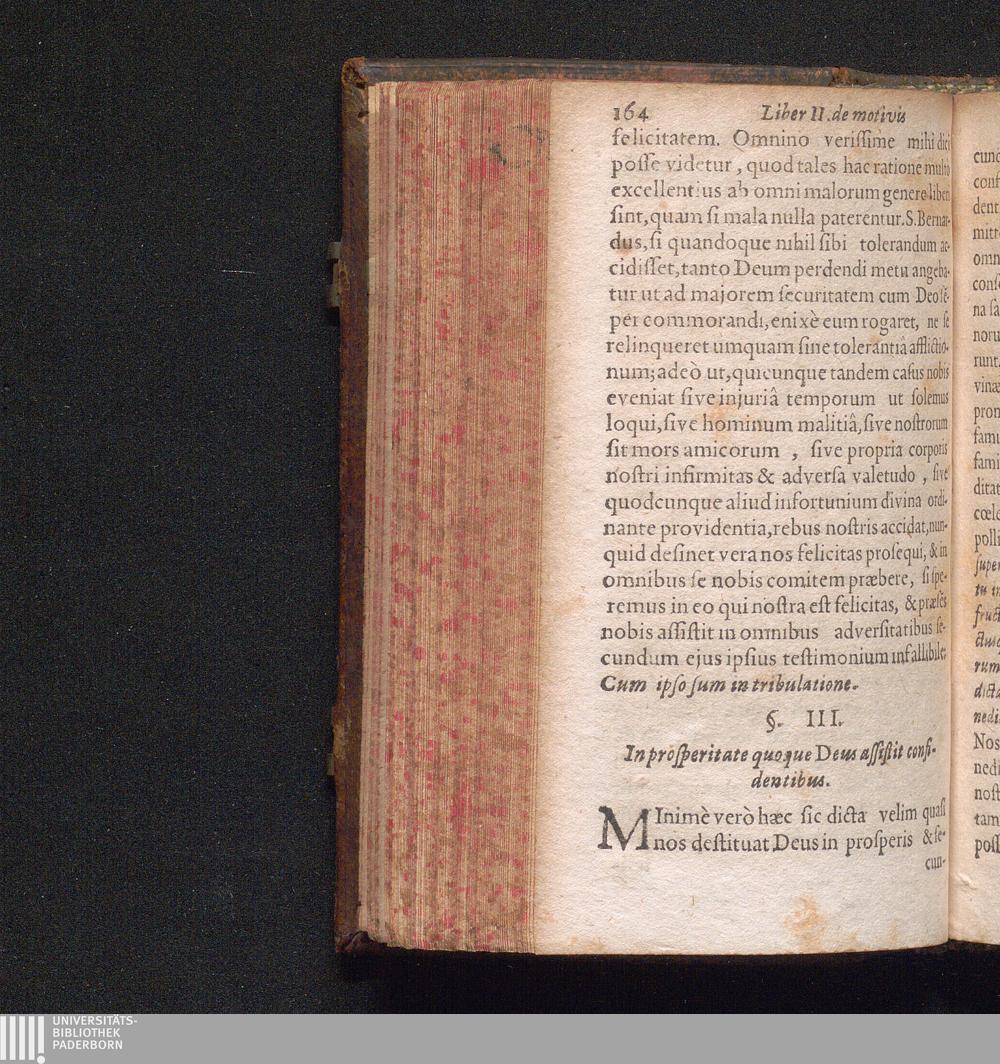 164 Liber II. de motivis
felicitatem. Omnino verissime mihi dici
posse videtur, quod tales hac ratione multo
excellentius ab omni malorum genere liberi
sint, quam si mala nulla paterentur. S. Bernar-
dus, si quandoque nihil sibi tolerandum ac-
cidisset, tanto Deum perdendi metu angeba-
tur ut ad majorem securitatem cum Deo sē-
per commorandi, enixè eum rogaret, ne se
relinqueret umquam sine tolerantiâ afflictio-
num; adeò ut, quicunque tandem casus nobis
eveniat sive injuriâ temporum ut solemus
loqui, sive hominum malitiâ, sive nostrorum
sit mors amicorum, sive propria corporis
nostri infirmitas & adversa valetudo, sive
quodcunque aliud infortunium divina ordi-
nante providentia, rebus nostris accidat, nun-
quid desinet vera nos felicitas prosequi, & in
omnibus se nobis comitem præbere, si spe-
remus in eo qui nostra est felicitas, & præsēs
nobis assistit in omnibus adversitatibus se-
cundum ejus ipsius testimonium infallibile:
Cum ipso sum in tribulatione.
§. III.
In prosperitate quoque Deus assistit confi-
dentibus.
MInimè verò hæc sic dicta velim quasi
nos destituat Deus in prosperis & se-
cun-
cunc
conf
dent
mitt
omn
conse
na sa
noru
runt.
vinæ
pron
famu
fami
ditat
cœle
polli
super
tu in
fruct
ctusq
rum
dicta
nedi
Nos
nedi
nost
tam
poss
UNIVERSITÄTS-
BIBLIOTHEK
PADERBORN